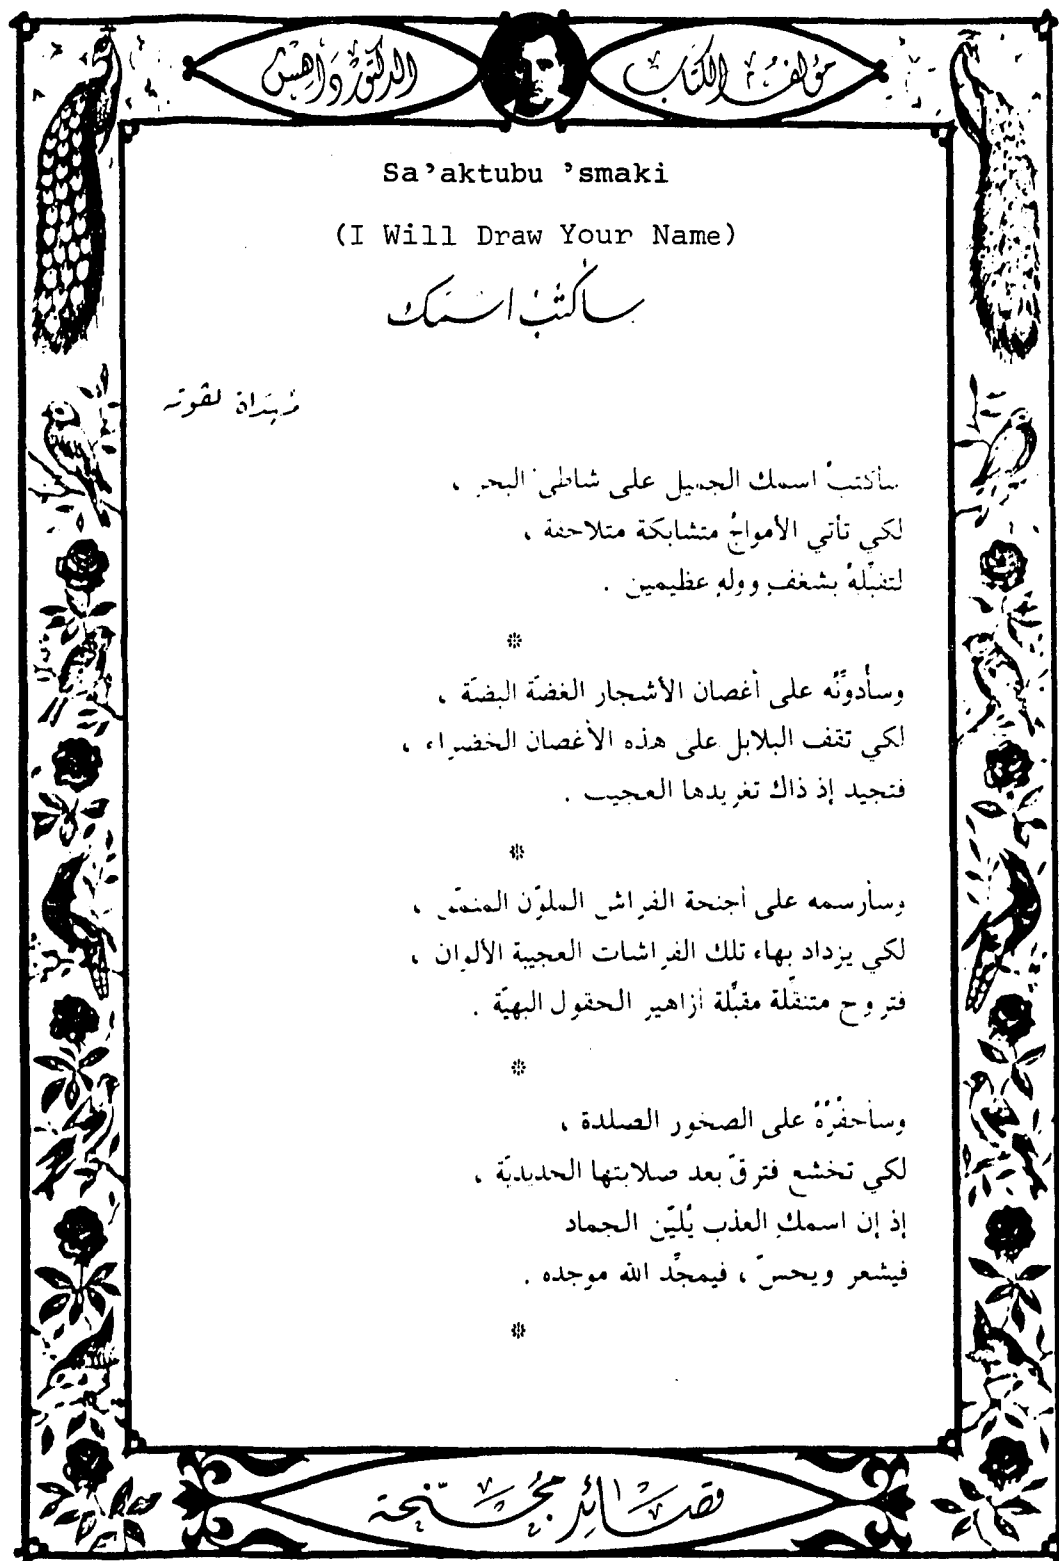 مؤلف الكتاب
الدكتور داهش
Sa’aktubu ’smaki
(I Will Draw Your Name)
سأكتب اسمك
مُهداة لقوته
سأكتبُ اسمك الجميل على شاطئ البحر ،
لكي تأتي الأمواجُ متشابكة متلاحقة ،
لتقبّلهُ بشغفٍ وولهٍ عظيمين .
*
وسأُدوِّنُه على أغصان الأشجار الغضّة البضّة ،
لكي تقف البلابل على هذه الأغصان الخضراء ،
فتجيد إذ ذاك تغريدها العجيب .
*
وسأرسمه على أجنحة الفراش الملوّن المنمّق ،
لكي يزداد بهاء تلك الفراشات العجيبة الألوان ،
فتروح متنقّلة مقبّلة أزاهير الحقول البهيّة .
*
وسأحفُرُهُ على الصخور الصلدة ،
لكي تخشع فترقّ بعد صلابتها الحديديّة ،
إذ إن اسمكِ العذب يُليّن الجماد
فيشعر ويحسّ ، فيمجِّد الله موجده .
*
قصائد مجنّحة